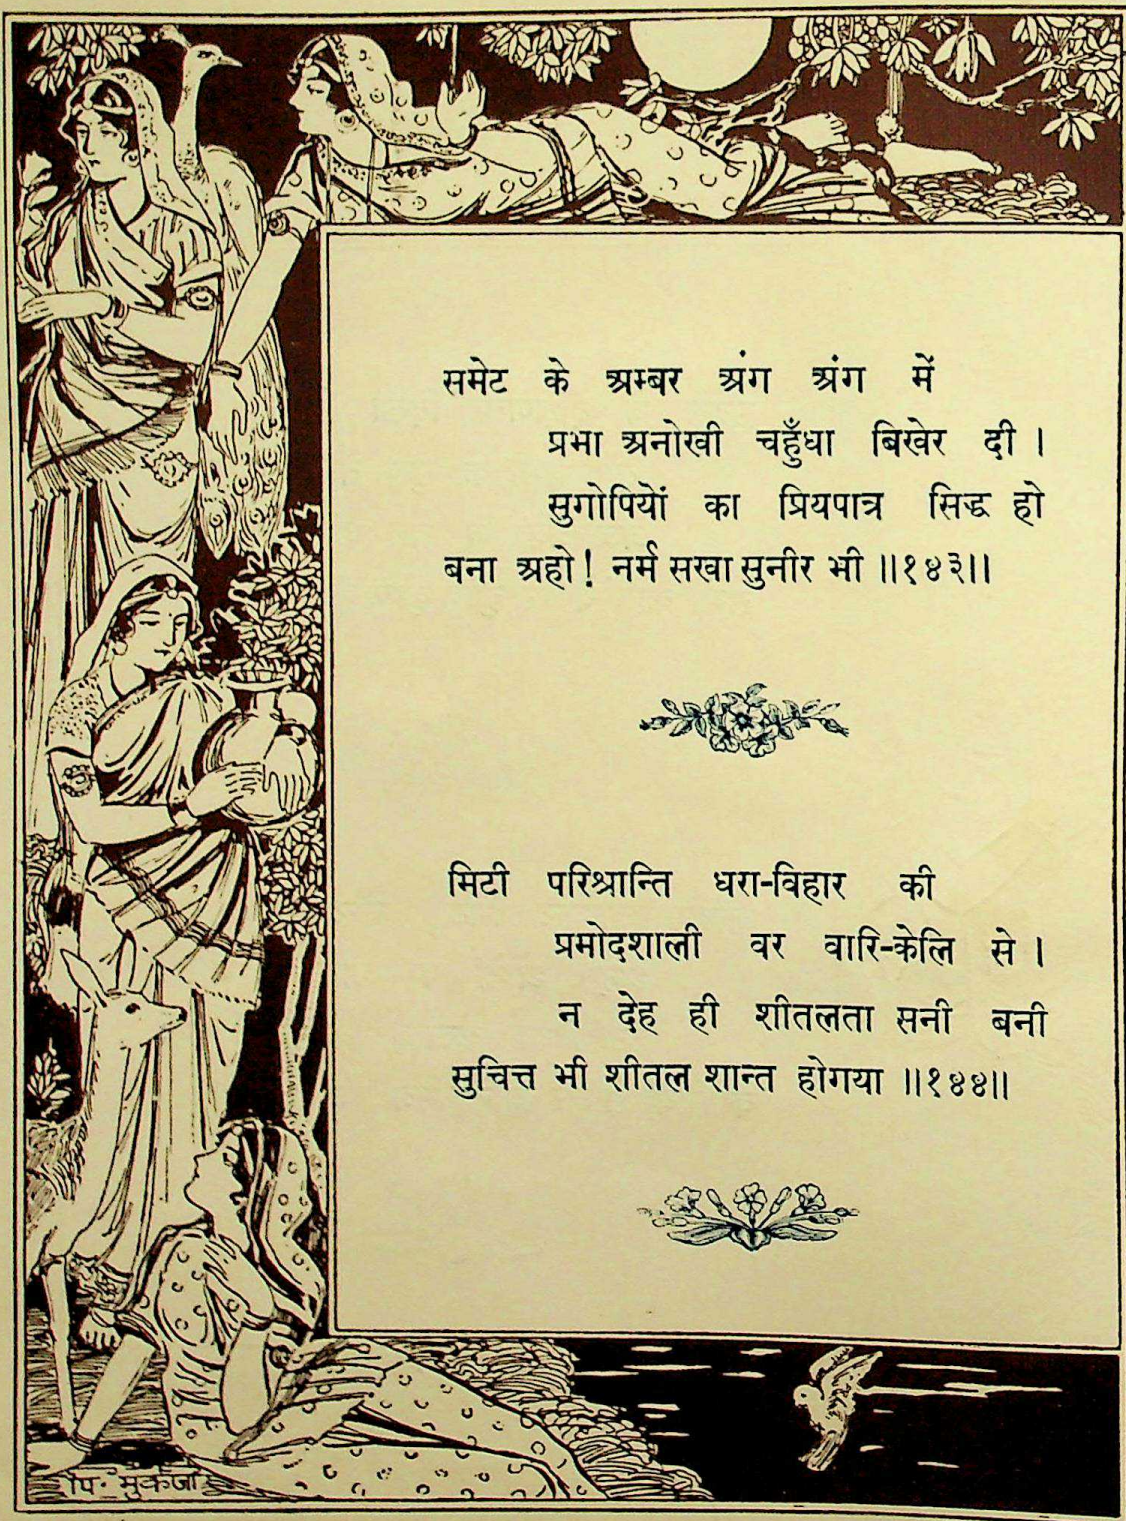 समेट के अम्बर अंग अंग में
प्रभा अनोखी चहुँधा बिखेर दी ।
सुगोपियों का प्रियपात्र सिद्ध हो
बना अहो! नर्म सखा सुनीर भी ॥१४३॥
मिटी परिश्रान्ति धरा-विहार की
प्रमोदशाली वर वारि-केलि से ।
न देह ही शीतलता सनी बनी
सुचित्त भी शीतल शान्त होगया ॥१४४॥
पि. मुकर्जी